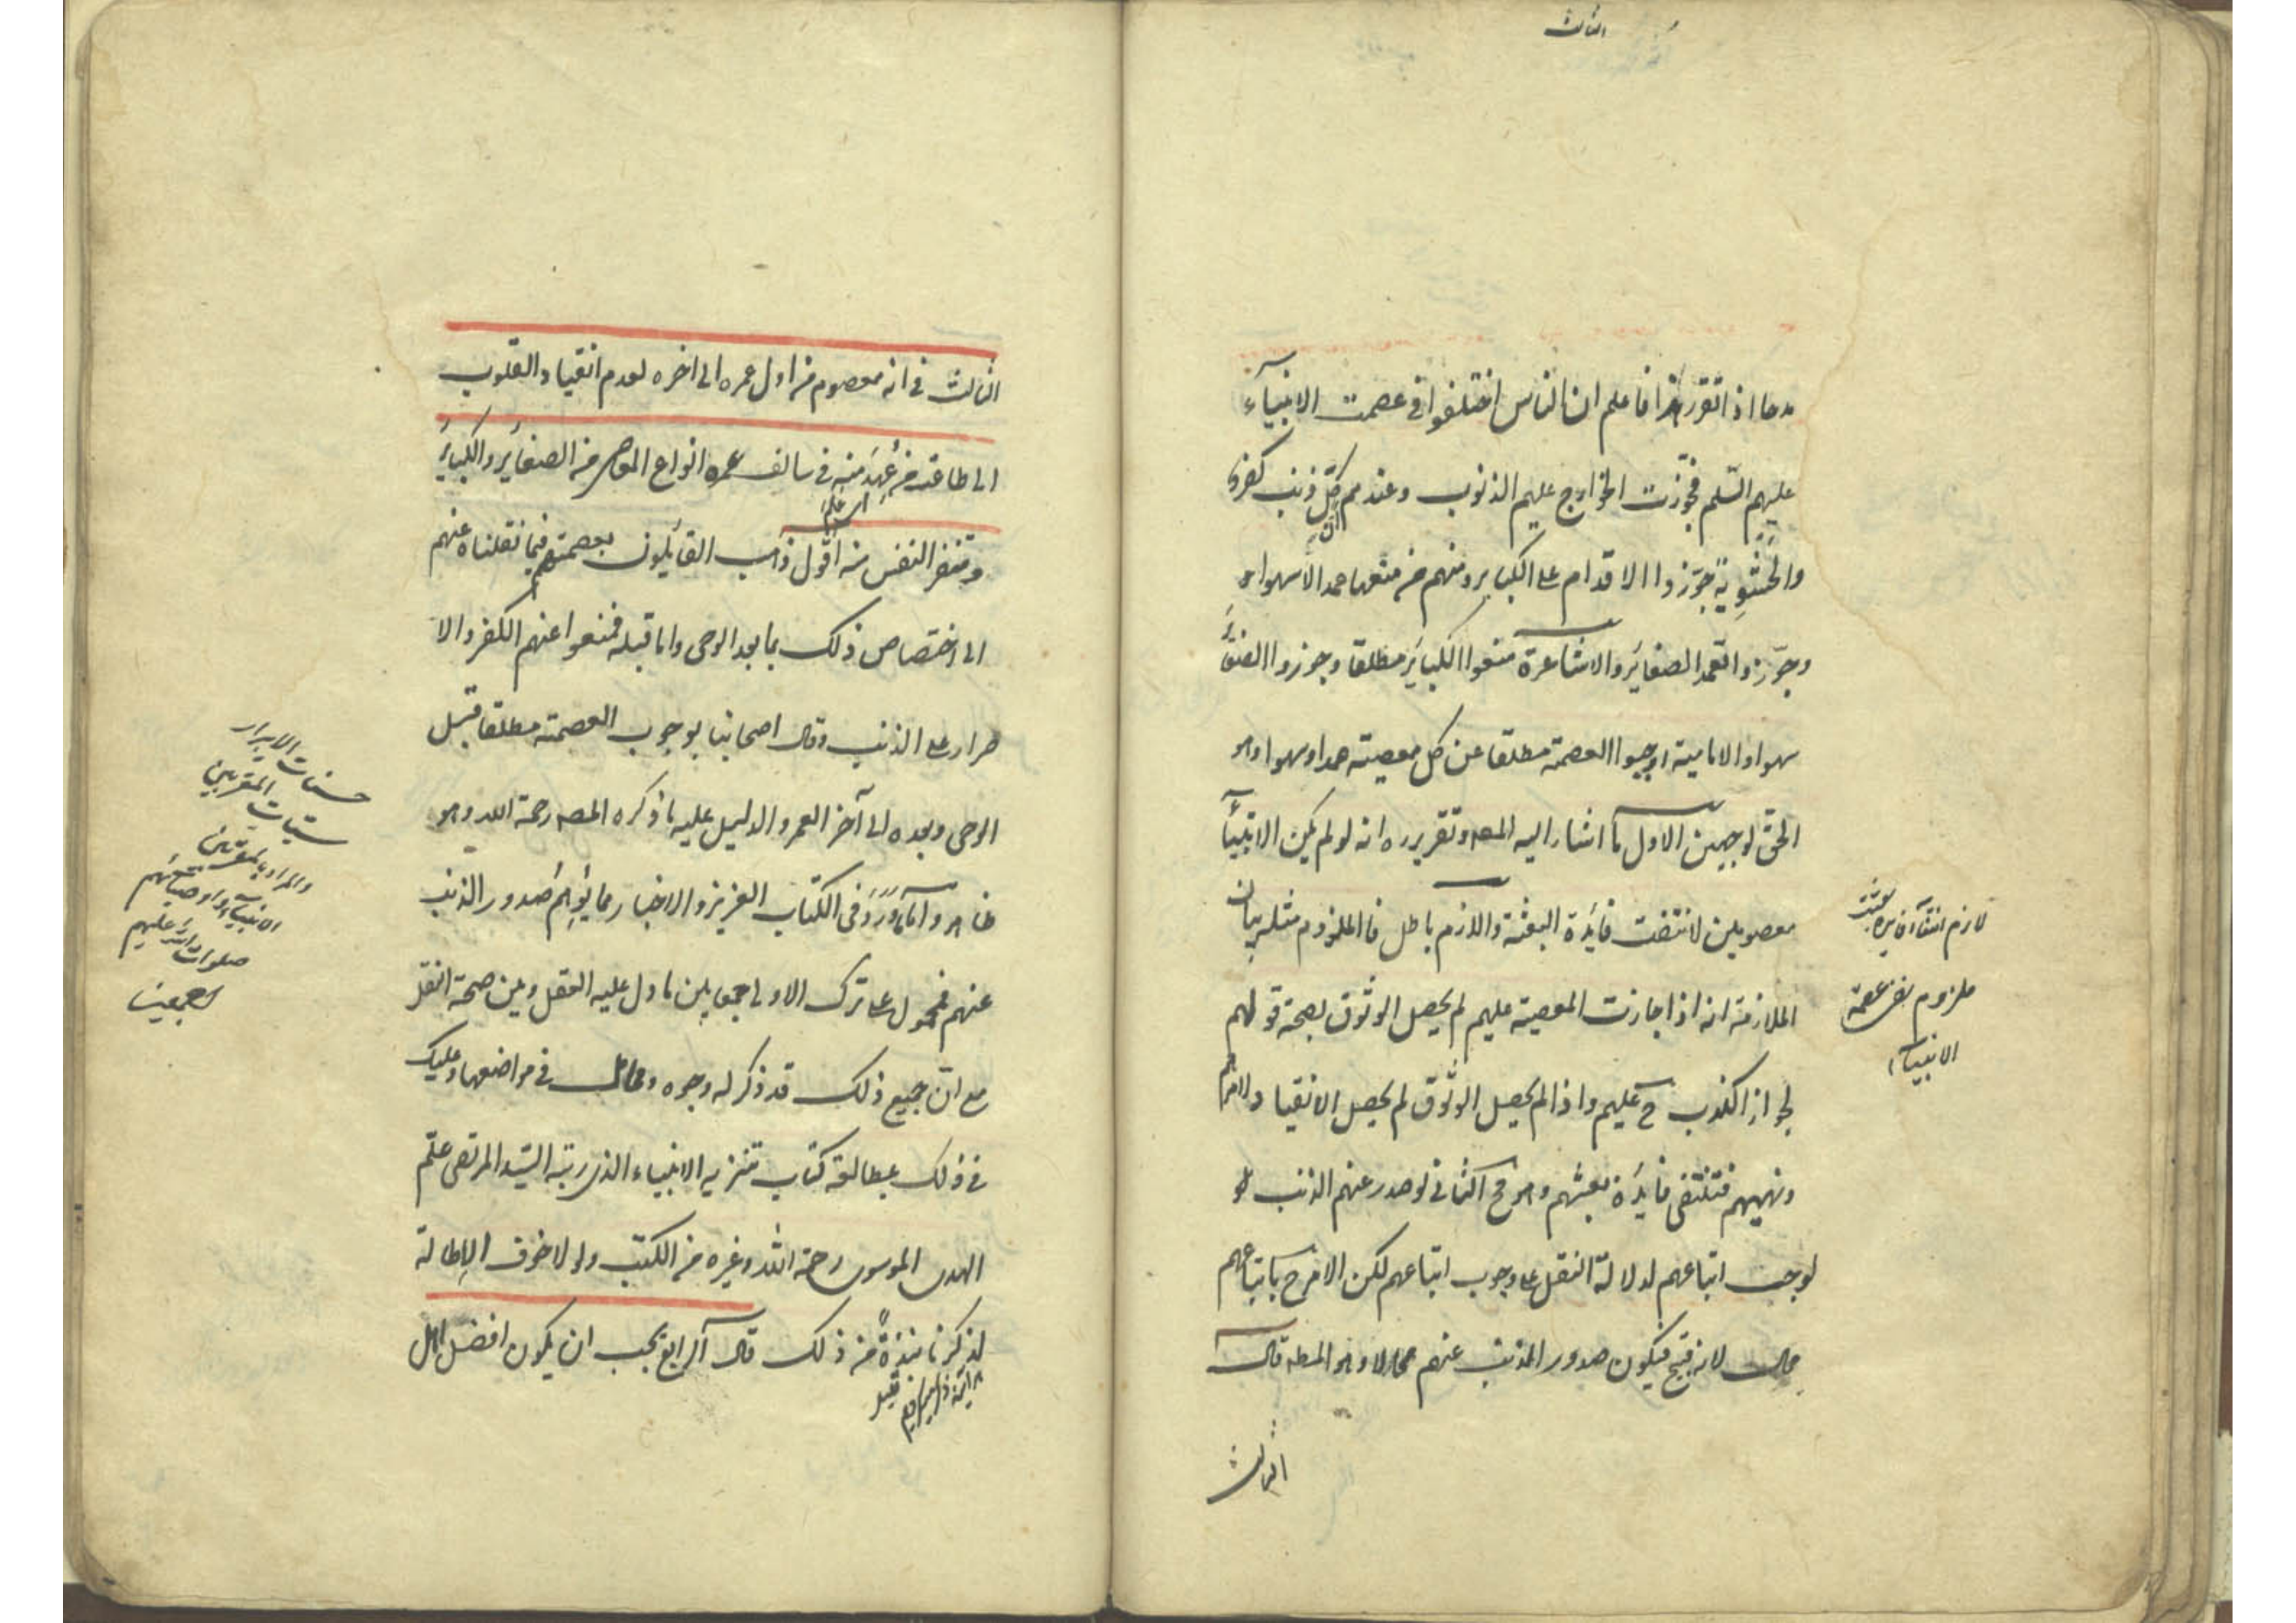 الثالث
مدحا اذا تقرر هذا فاعلم ان الناس اختلفوا فى عصمت الانبيآء
عليهم السّلم فجوّزت الخوارج عليهم الذنوب وعندهم كلّ ذنب كفر
والحشوِية جوّزوا الاقدام على الكباير ومنهم من منعها عمدا لا سهوا
وجوّزوا تعمد الصغاير والاشاعرة منعوا الكباير مطلقا وجوزوا الصغاير
سهوا والامامية اوجبوا العصمة مطلقا عن كل معصية عمدا وسهوا وهو
الحق لوجهين الاول ما اشار اليه المصـ وتقريره انه لو لم يكن الانبيآء
معصومين لانتفت فايدة البعثة واللازم باطل فالملزوم مثله بيان
الملازمة انه اذا جازت المعصية عليهم لم يحصل الوثوق بصحة قولهم
لجواز الكذب ح عليهم واذا لم يحصل الوثوق لم يحصل الانقياد لامرهم
ونهيهم فتنتفى فايدة بعثهم وهو مح الثانى لو صدر عنهم الذنب
لوجب اتباعهم لدلالة النقل على وجوب اتباعهم لكن الامر ح باتباعهم
محال لانه قبيح فيكون صدور الذنب عنهم محالا وهو المطـ قال
الثالث
لازم انتفآء فايده بعثت
ملزوم نفى عصمة
الانبيآء
الثالث فى انه معصوم من اول عمره الى اخره لعدم انقياد القلوب
الى طاعة من عُهِدَ منه فى سالف عمره انواع المعاصى من الصغاير والكباير
وتنفر النفس منه اقول ذهب القايلون بعصمتهم فيما نقلناه عنهم
الى اختصاص ذلك بما بعد الوحى واما قبله فمنعوا عنهم الكفر والا
صرار على الذنب وقال اصحابنا بوجوب العصمة مطلقا قبل
الوحى وبعده الى آخر العمر والدليل عليه ما ذكره المصـ رحمة الله وهو
ظاهر وامّا ما وَرَدَ فى الكتاب العزيز والاخبار مما يُوهِم صُدور الذنب
عنهم فمحمول على ترك الاولى جمعا بين ما دل عليه العقل وبين صحة النقل
مع انّ جميع ذلك قد ذكر له وجوه ومحامل فى مواضعها وعليك
فى ذلك بمطالعة كتاب تنزيه الانبياء الذى رتبه السّيد المرتضى علم
الهدى الموسوى رحمة الله وغيره من الكتب ولولا خوف الاِطالة
لذكرنا نبذةً من ذلك قال الرابع يجب ان يكون افضل اهل
حسنات الابرار
سيئات المقربين
والمراد بالمقربين
الانبيآء واوصيائهم
صلوات الله عليهم
اجمعين